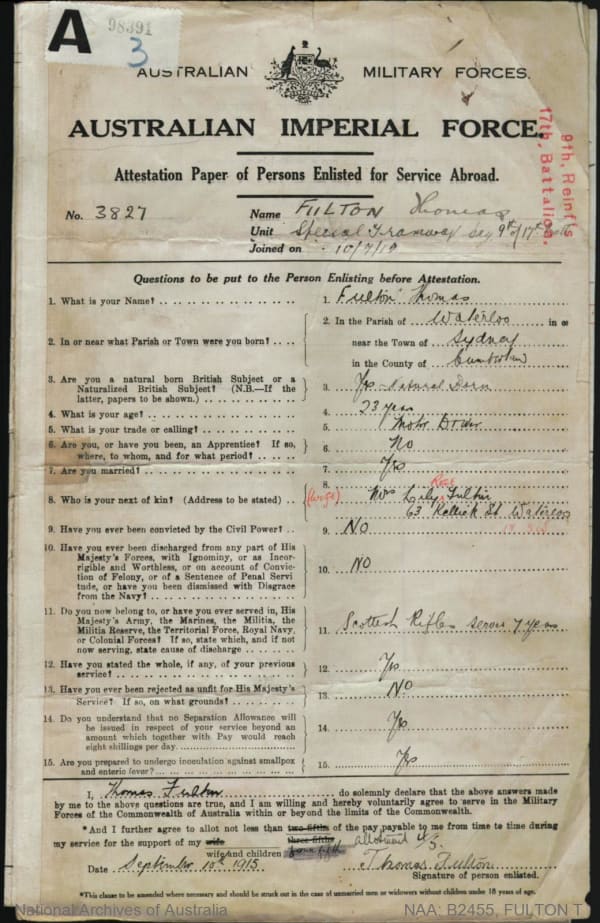 A
98391
3
AUSTRALIAN MILITARY FORCES.
AUSTRALIAN IMPERIAL FORCE.
9th, Reinfts
17th, Battalion.
Attestation Paper of Persons Enlisted for Service Abroad.
No. 3827
Name FULTON Thomas
Unit Special Tramway 9th/17th Battn
Joined on 10/7/19
Questions to be put to the Person Enlisting before Attestation.
1. What is your Name?
1. Fulton Thomas
2. In or near what Parish or Town were you born?
2. In the Parish of Waterloo in or
near the Town of Sydney
in the County of Cumberland
3. Are you a natural born British Subject or a
Naturalized British Subject? (N.B.—If the
latter, papers to be shown.)
3. Yes Natural Born
4. What is your age?
4. 23 years
5. What is your trade or calling?
5. Motor Driver
6. Are you, or have you been, an Apprentice? If so,
where, to whom, and for what period?
6. No
7. Are you married?
7. Yes
8. Who is your next of kin? (Address to be stated)
8. (wife) Mrs Lily Rose Fulton
63 Kellick St Waterloo
9. Have you ever been convicted by the Civil Power?
9. No
10. Have you ever been discharged from any part of His
Majesty's Forces, with Ignominy, or as Incor-
rigible and Worthless, or on account of Convic-
tion of Felony, or of a Sentence of Penal Servi
tude, or have you been dismissed with Disgrace
from the Navy?
10. No
11. Do you now belong to, or have you ever served in, His
Majesty's Army, the Marines, the Militia, the
Militia Reserve, the Territorial Force, Royal Navy,
or Colonial Forces? If so, state which, and if not
now serving, state cause of discharge
11. Scottish Rifles serves 7 years
12. Have you stated the whole, if any, of your previous
service?
12. Yes
13. Have you ever been rejected as unfit for His Majesty's
Service? If so, on what grounds?
13. No
14. Do you understand that no Separation Allowance will
be issued in respect of your service beyond an
amount which together with Pay would reach
eight shillings per day.
14. Yes
15. Are you prepared to undergo inoculation against smallpox
and enteric fever?
15. Yes
I, Thomas Fulton do solemnly declare that the above answers made
by me to the above questions are true, and I am willing and hereby voluntarily agree to serve in the Military
Forces of the Commonwealth of Australia within or beyond the limits of the Commonwealth.
*And I further agree to allot not less than two-fifths of the pay payable to me from time to time during
three-fifths
my service for the support of my wife
wife and children
allotment 4/3.
Date September 10th 1915
Thomas Fulton
Signature of person enlisted.
*This clause to be amended where necessary and should be struck out in the case of unmarried men or widowers without children under 18 years of age.
National Archives of Australia
NAA: B2455, FULTON T